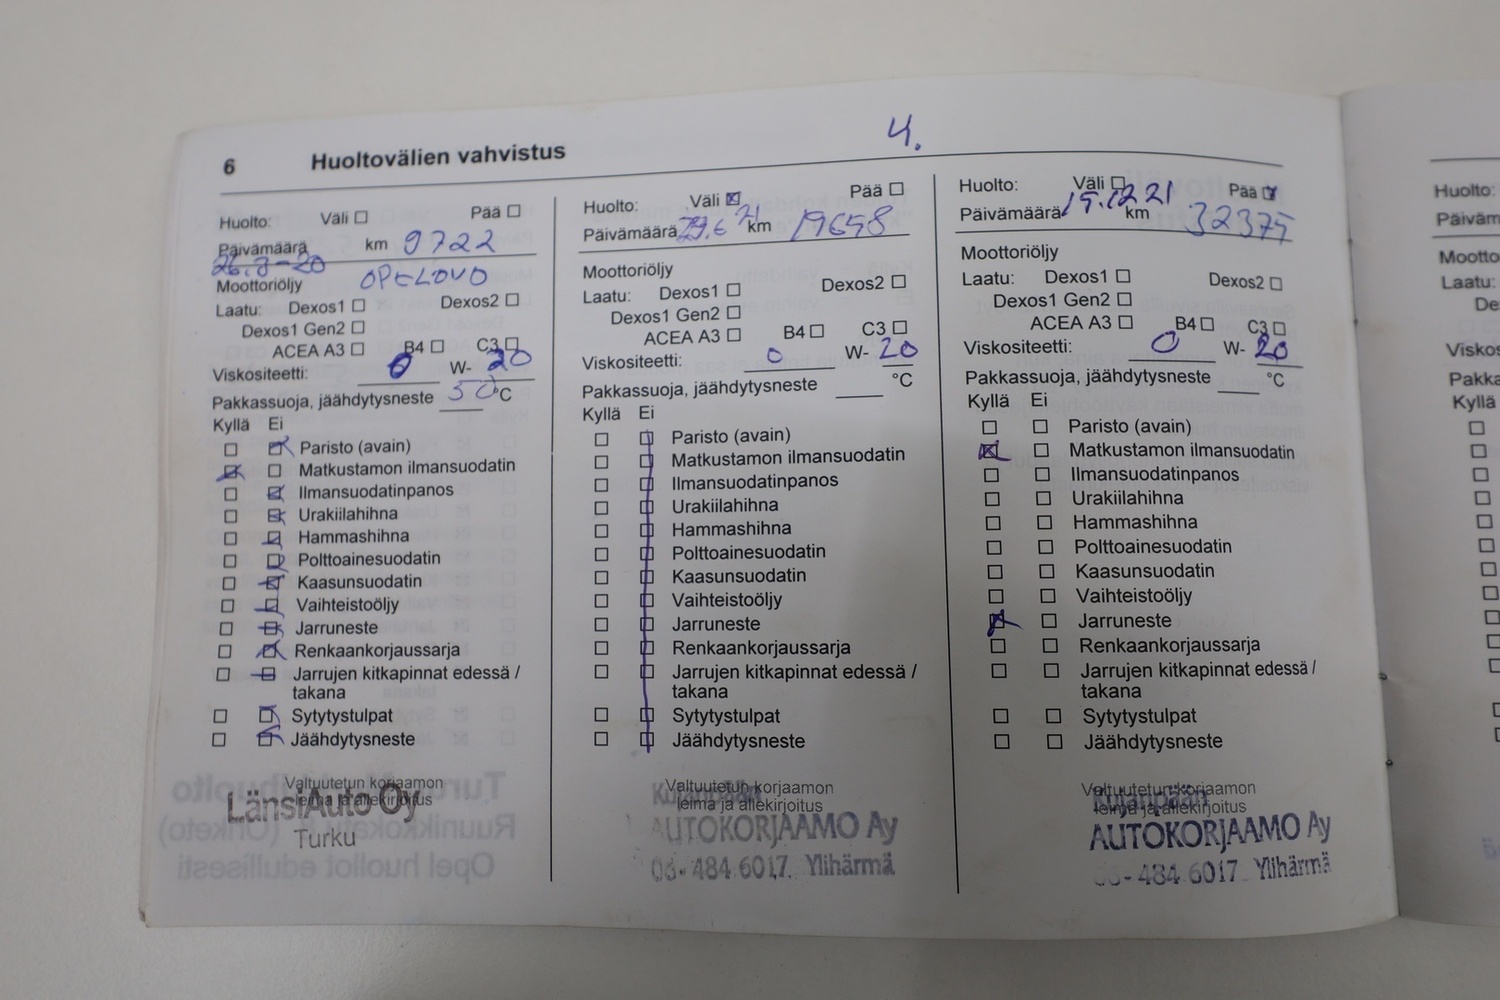 6 Huoltovälien vahvistus
4.
Huolto: Väli Pää
Päivämäärä km 9722
26.3-20
Moottoriöljy OPELOVO
Laatu: Dexos1 Dexos2
Dexos1 Gen2
ACEA A3 B4 C3
Viskositeetti: 0 W- 20
Pakkassuoja, jäähdytysneste 50 °C
Kyllä Ei
Paristo (avain)
Matkustamon ilmansuodatin
Ilmansuodatinpanos
Urakiilahihna
Hammashihna
Polttoainesuodatin
Kaasunsuodatin
Vaihteistoöljy
Jarruneste
Renkaankorjaussarja
Jarrujen kitkapinnat edessä /
takana
Sytytystulpat
Jäähdytysneste
Valtuutetun korjaamon
leima ja allekirjoitus
LänsiAuto Oy
Turku
Huolto: Väli Pää
Päivämäärä 29.6 21 km 19658
Moottoriöljy
Laatu: Dexos1 Dexos2
Dexos1 Gen2
ACEA A3 B4 C3
Viskositeetti: 0 W- 20
Pakkassuoja, jäähdytysneste °C
Kyllä Ei
Paristo (avain)
Matkustamon ilmansuodatin
Ilmansuodatinpanos
Urakiilahihna
Hammashihna
Polttoainesuodatin
Kaasunsuodatin
Vaihteistoöljy
Jarruneste
Renkaankorjaussarja
Jarrujen kitkapinnat edessä /
takana
Sytytystulpat
Jäähdytysneste
Valtuutetun korjaamon
leima ja allekirjoitus
AUTOKORJAAMO Ay
06-484 6017 Ylihärmä
Huolto: Väli Pää
Päivämäärä 15.12 21 km 32375
Moottoriöljy
Laatu: Dexos1 Dexos2
Dexos1 Gen2
ACEA A3 B4 C3
Viskositeetti: 0 W- 20
Pakkassuoja, jäähdytysneste °C
Kyllä Ei
Paristo (avain)
Matkustamon ilmansuodatin
Ilmansuodatinpanos
Urakiilahihna
Hammashihna
Polttoainesuodatin
Kaasunsuodatin
Vaihteistoöljy
Jarruneste
Renkaankorjaussarja
Jarrujen kitkapinnat edessä /
takana
Sytytystulpat
Jäähdytysneste
Valtuutetun korjaamon
leima ja allekirjoitus
AUTOKORJAAMO Ay
06-484 6017 Ylihärmä
Huolto:
Laatu:
Kyllä